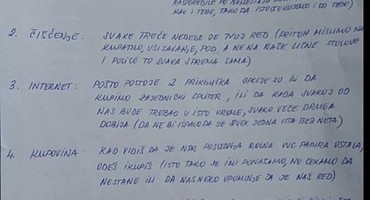 KAO I TEBE, TAKO DA
2. ČIŠĆENJE: SVAKE TREĆE NEDELJE JE TVOJ RED (PRITOM MISLIMO NA
KUPATILO, USISAVANJE, POD, A NE NA NAŠE LIČNE STOLOVE
I POLICE TO SVAKA SPREMA SAMA)
3. INTERNET: POŠTO POSTOJE 2 PRIKLJUČKA OPCIJE SU ILI DA
KUPIMO ZAJEDNIČKI SPLITER, ILI DA KADA SVAKOJ OD
NAS BUDE TREBAO U ISTO VREME, SVAKO VEČE DRUGA
DOBIJA (DA NE BI ISPALO DA JE UVEK JEDNA ISTA BEZ NETA)
4. KUPOVINA: KAO VIDIŠ DA JE NPR POSLEDNJA ROLNA WC PAPIRA OSTALA,
ODEŠ I KUPIŠ (ISTO TAKO SE I MI PONAŠAMO, NE ČEKAMO DA
NESTANE ILI DA NAS NEKO OPOMINJE DA JE NAŠ RED)